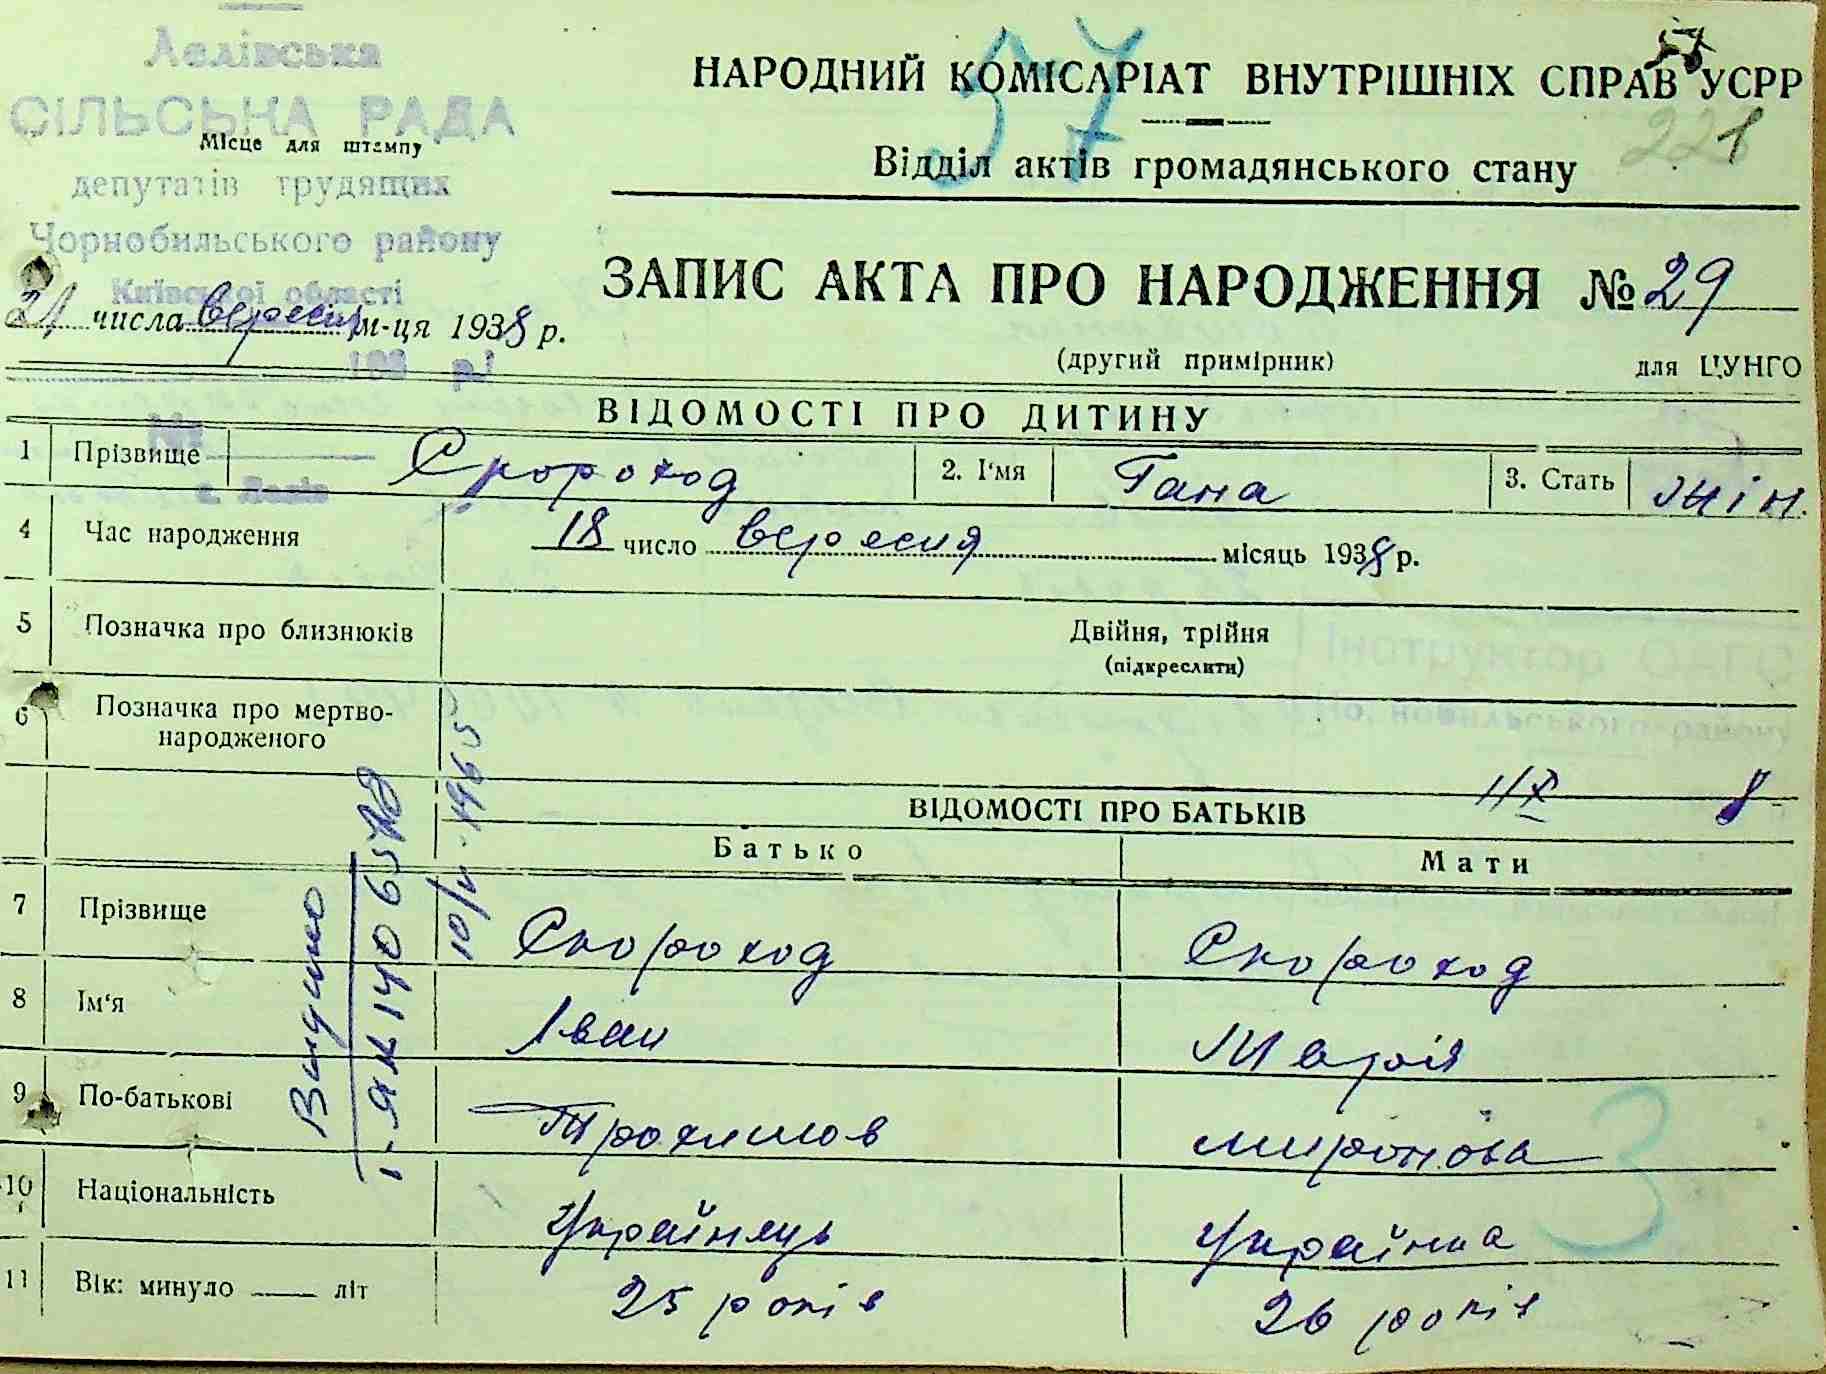 Лелівська
СІЛЬСЬКА РАДА
Місце для штампу
депутатів трудящих
Чорнобильського району
Київської області
21 числа вересня м-ця 1938 р.
193 р.
№
с. Лелів
57
37
НАРОДНИЙ КОМІСАРІАТ ВНУТРІШНІХ СПРАВ УСРР
221
Відділ актів громадянського стану
ЗАПИС АКТА ПРО НАРОДЖЕННЯ № 29
(другий примірник) для ЦУНГО
ВІДОМОСТІ ПРО ДИТИНУ
1 Прізвище Скороход 2. І'мя Гана 3. Стать жін.
4 Час народження 18 число вересня місяць 1938 р.
5 Позначка про близнюків Двійня, трійня
(підкреслити)
Інструктор ОАГС
Чорнобильського району
6 Позначка про мертво-
народженого
ІІХ 8
ВІДОМОСТІ ПРО БАТЬКІВ
Батько Мати
7 Прізвище Скороход Скороход
8 Ім'я Іван Марія
9 По-батькові Трохимов миронова
10 Національність Українець Українка
11 Вік: минуло літ 25 років 26 років
Видано
І-ЯК 1406578
1965
3